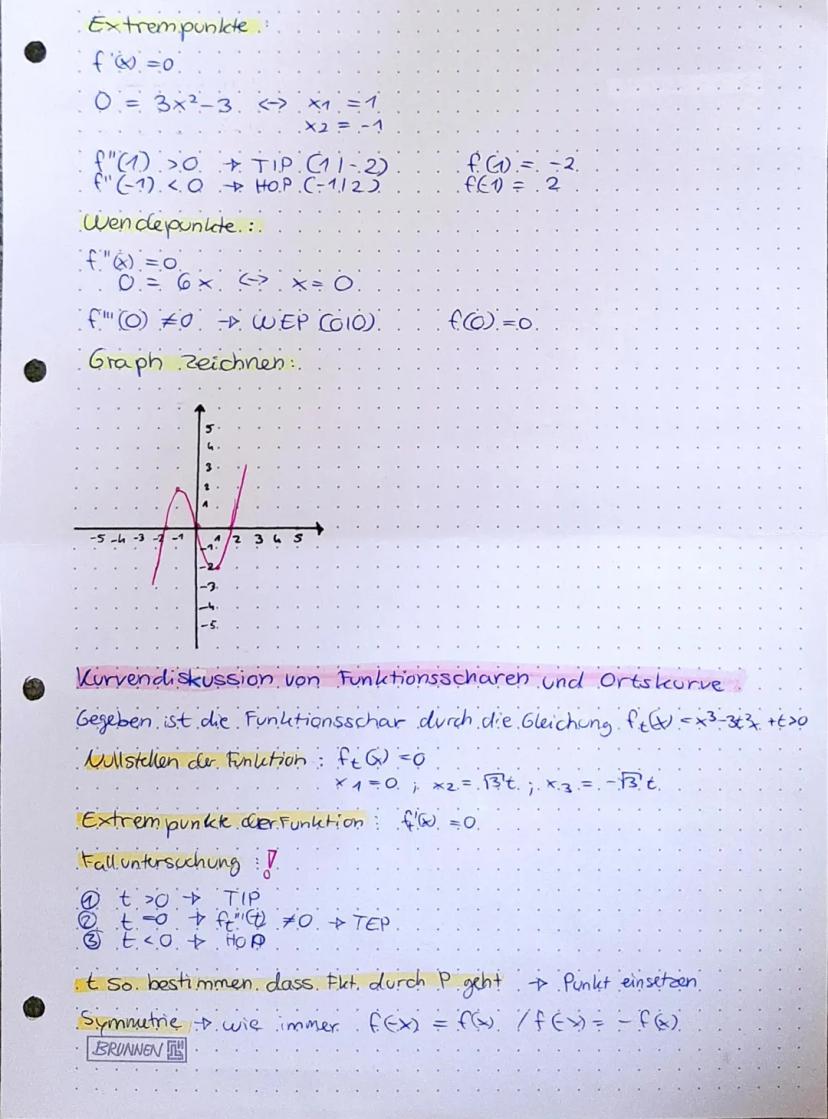 Extrempunkte:
f'(x) = 0
0 = 3x²-3 <-> x1 = 1
x2 = -1
f"(1) > 0 → TIP (1|-2) f(1) = -2
f"(-1) < 0 → HOP (-1|2) f(-1) = 2
Wendepunkte:
f"(x) = 0
0 = 6x <-> x = 0
f'''(0) ≠ 0 → WEP (0|0) f(0) = 0
Graph zeichnen:
5
4
3
2
1
-5 -4 -3 -2 -1 1 2 3 4 5
-1
-2
-3
-4
-5
Kurvendiskussion von Funktionsscharen und Ortskurve
Gegeben ist die Funktionsschar durch die Gleichung ft(x) = x³-3t²x +t>0
Nullstellen der Funktion: ft(x) = 0
x1 = 0 ; x2 = √3't ; x3 = -√3't
Extrempunkte der Funktion: f'(x) = 0
Falluntersuchung: !
① t > 0 → TIP
② t = 0 → ft'''(t) ≠ 0 → TEP
③ t < 0 → HOP
t so bestimmen, dass Fkt. durch P geht → Punkt einsetzen
Symmetrie → wie immer f(-x) = f(x) / f(-x) = -f(x)
BRUNNEN